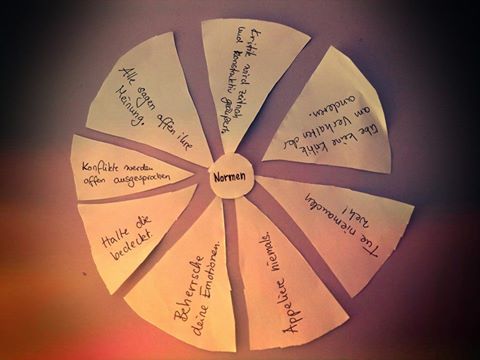 Normen
Kritik wird zeitnah
und konstruktiv geäußert.
Übe keine Kritik
am Verhalten der
anderen.
Tue niemanden
weh!
Appeliere niemals.
Beherrsche
deine Emotionen.
Halte die
bedeckt.
Konflikte werden
offen ausgesprochen
Alle sagen offen ihre
Meinung.